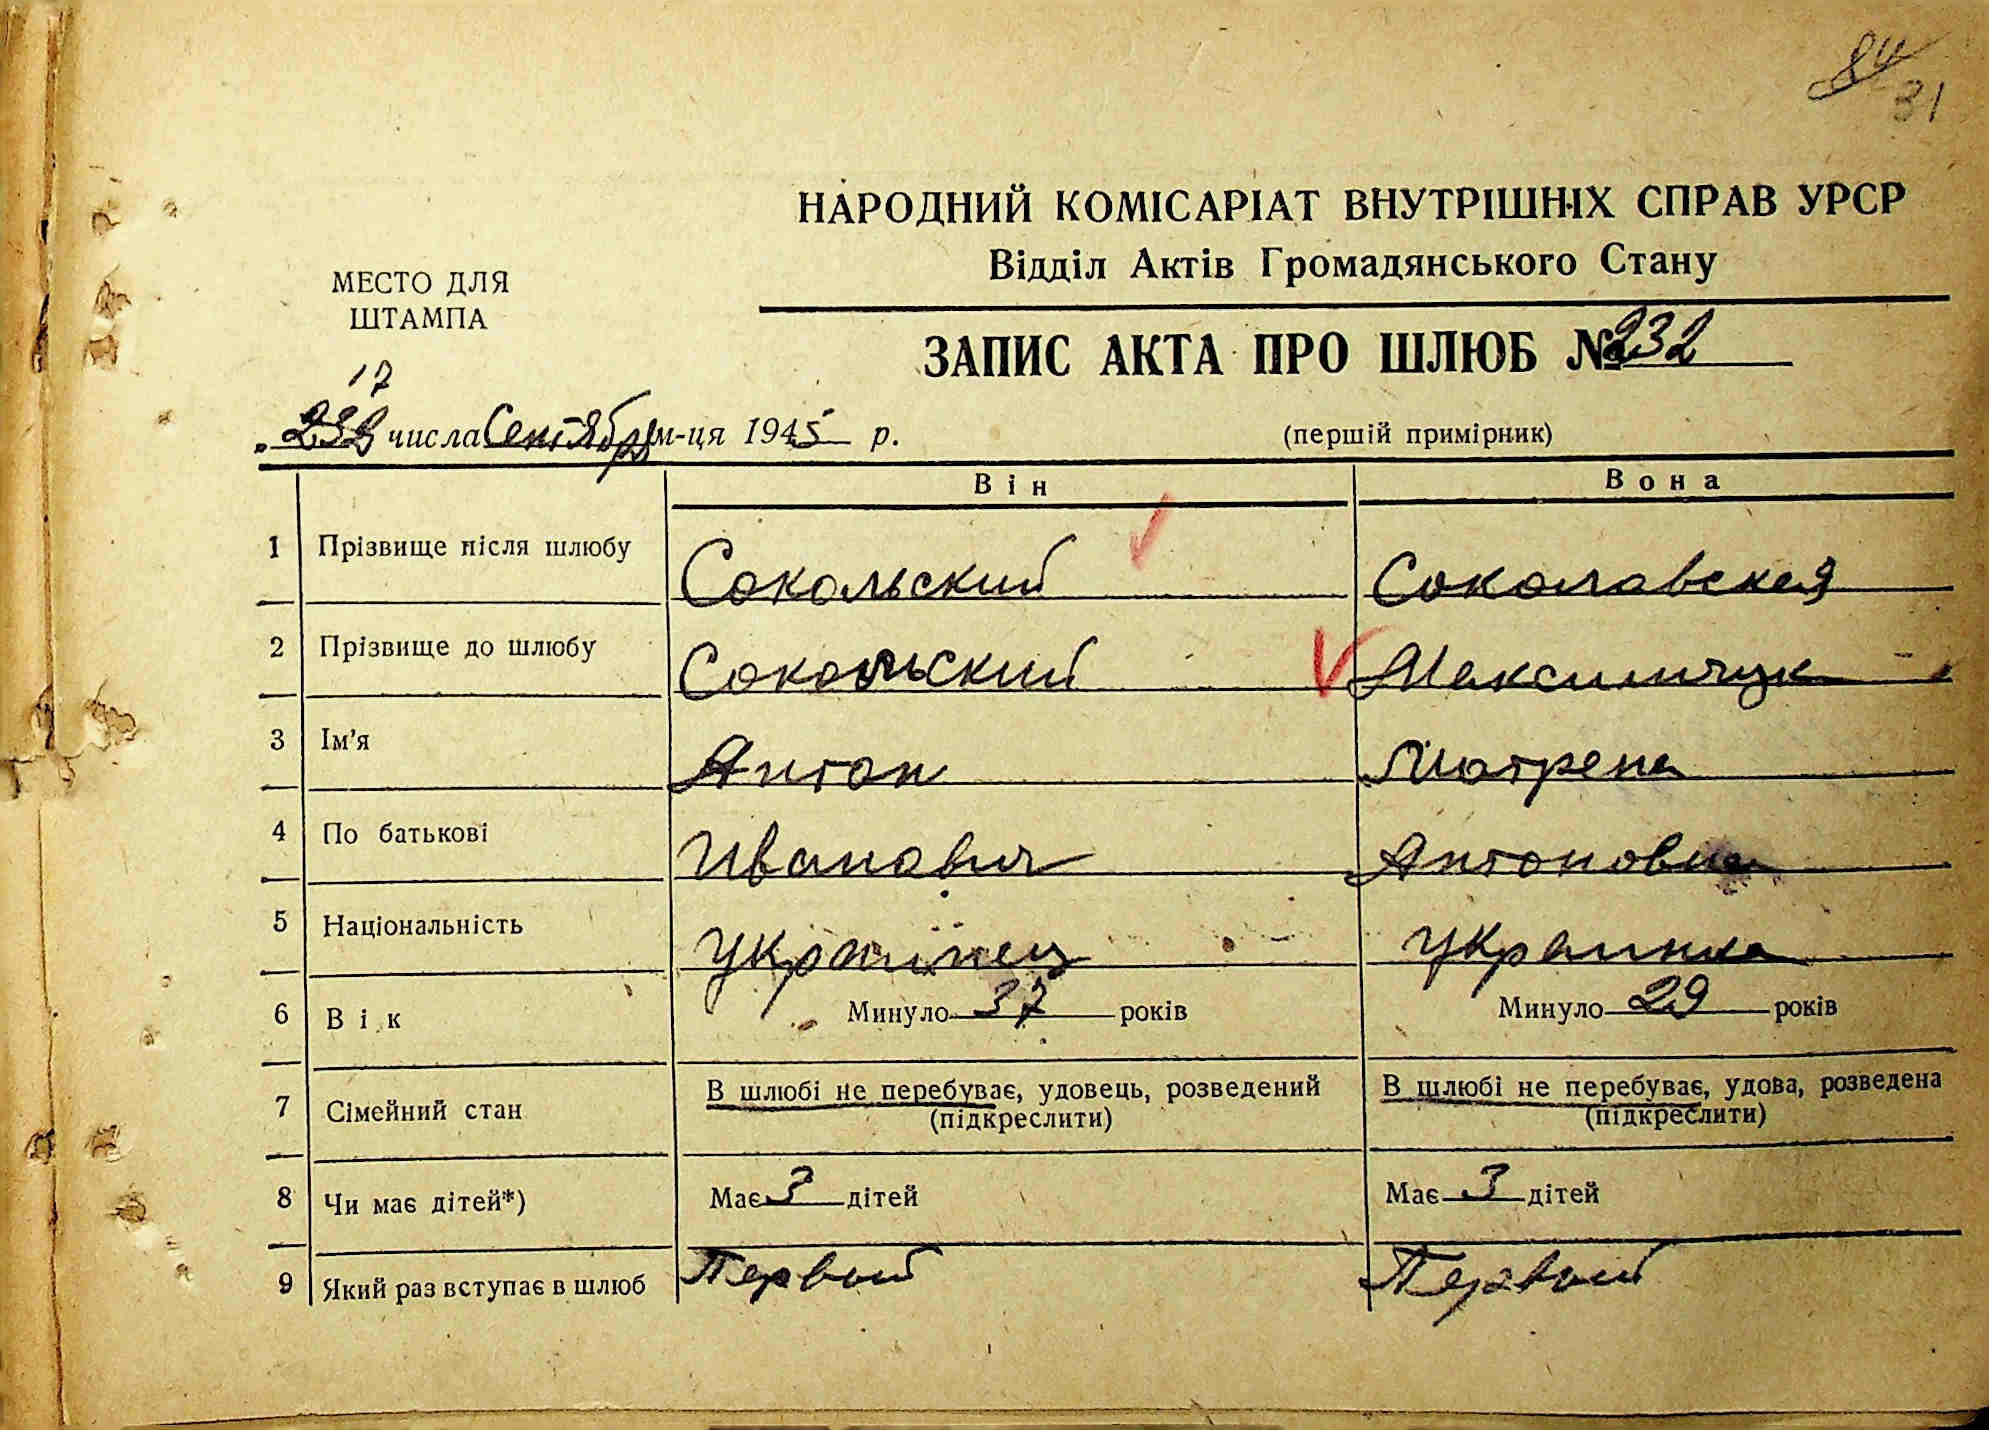 84
31
НАРОДНИЙ КОМІСАРІАТ ВНУТРІШНІХ СПРАВ УРСР
Відділ Актів Громадянського Стану
МЕСТО ДЛЯ
ШТАМПА
ЗАПИС АКТА ПРО ШЛЮБ № 232
17
„232 числа Сентября м-ця 1945 р.
(перший примірник)
Він Вона
1 Прізвище після шлюбу Сокольский Соколавская
2 Прізвище до шлюбу Сокольский Максимчук
3 Ім'я Антон Матрена
4 По батькові Иванович Антоновна
5 Національність украинец украинка
6 Вік Минуло 37 років Минуло 29 років
7 Сімейний стан В шлюбі не перебуває, удовець, розведений В шлюбі не перебуває, удова, розведена
(підкреслити) (підкреслити)
8 Чи має дітей*) Має 3 дітей Має 3 дітей
9 Який раз вступає в шлюб Первый Первый